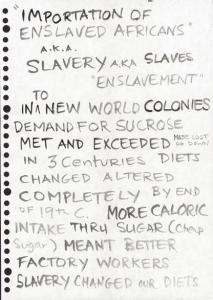 "IMPORTATION OF
ENSLAVED AFRICANS"
A.K.A.
SLAVERY A.K.A SLAVES
"ENSLAVEMENT"
TO
IN A NEW WORLD COLONIES
DEMAND FOR SUCROSE
MET AND EXCEEDED MADE COST
GO DOWN
IN 3 CENTURIES DIETS
CHANGED ALTERED
COMPLETELY BY END
OF 19th C. MORE CALORIC
INTAKE THRU SUGAR (Cheap
Sugar) MEANT BETTER
FACTORY WORKERS
SLAVERY CHANGED OUR DIETS